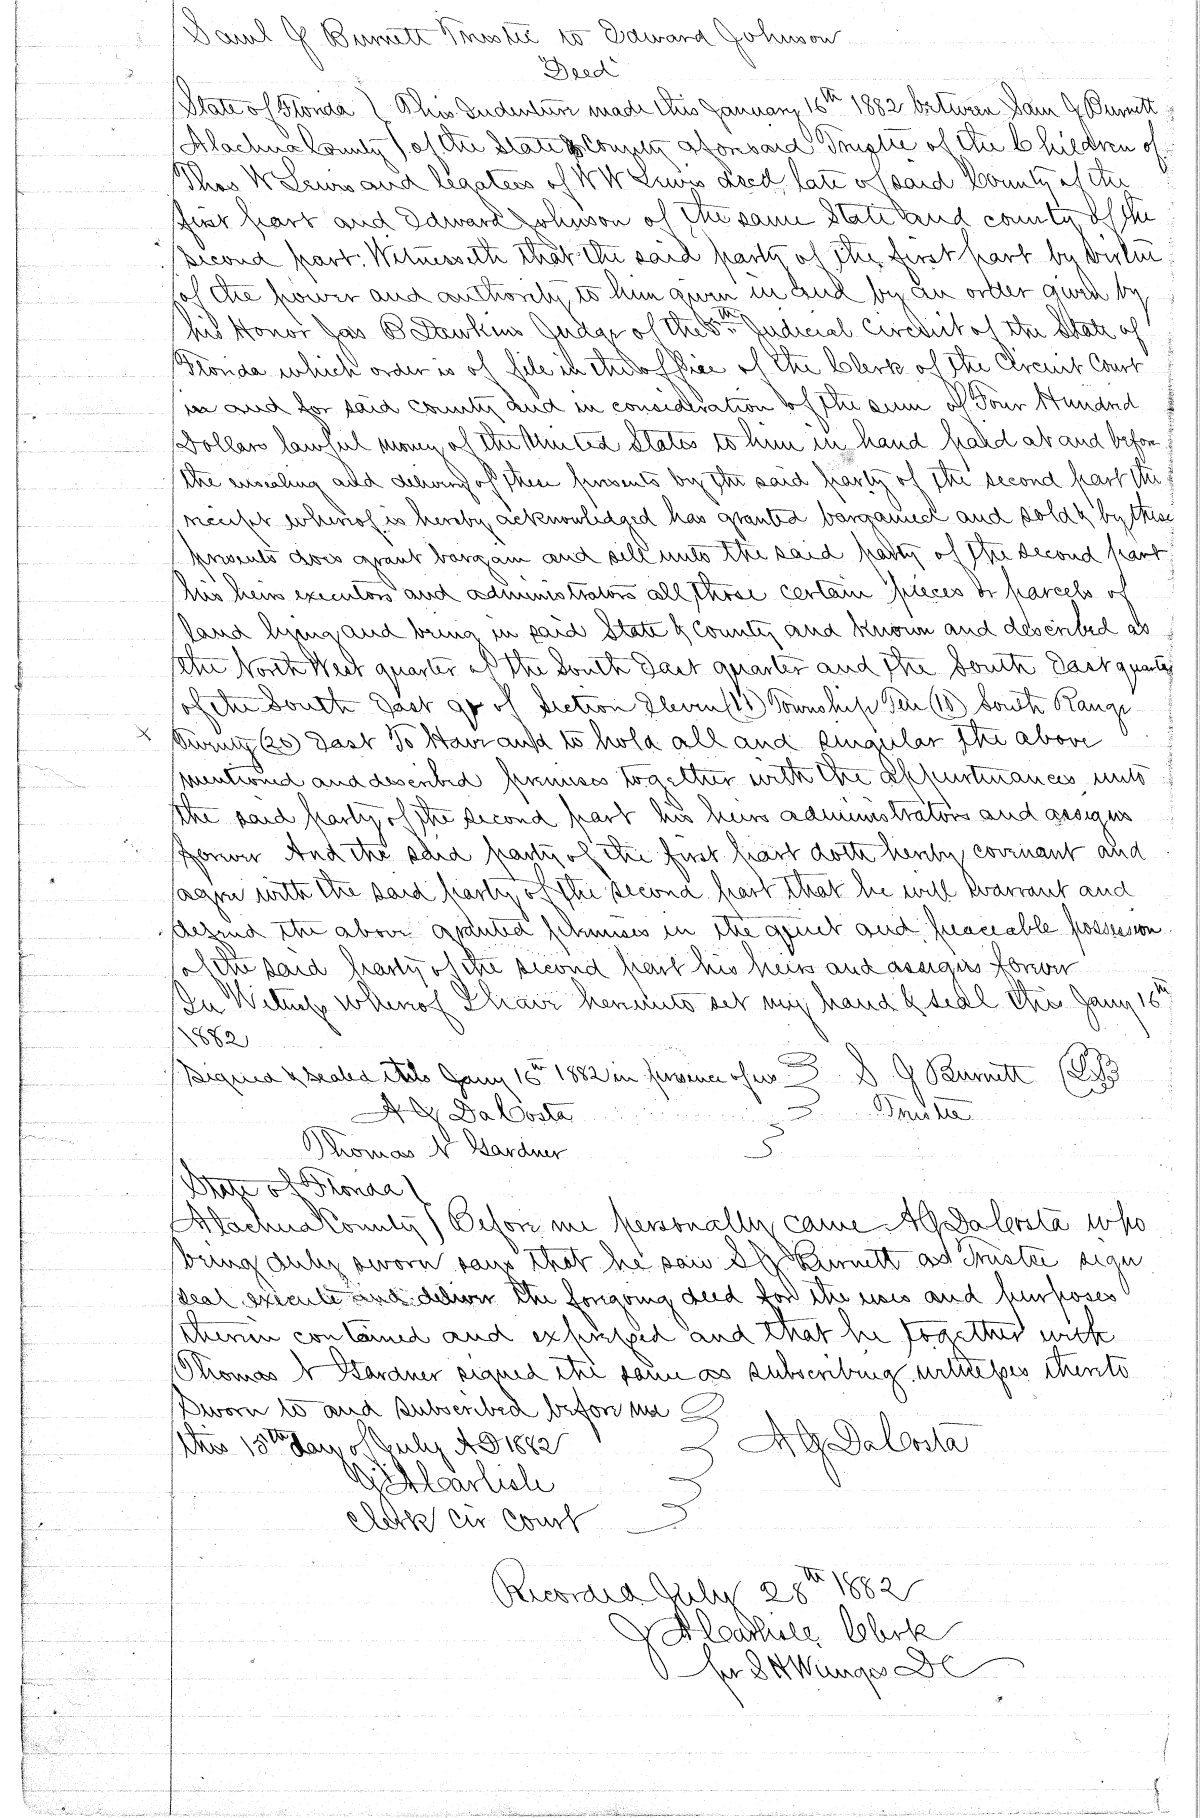 Saml J Burnett Trustee to Edward Johnson
"Deed"
State of Florida } This Indenture made this January 16th 1882 between Sam J Burnett
Alachua County } of the State & County aforesaid Trustee of the Children of
Thos W Lewis and legatees of W W Lewis decd, late of said County of the
first part and Edward Johnson of the same State and county of the
second part. Witnesseth that the said party of the first part by virtue
of the power and authority to him given in and by an order given by
his Honor Jas B Dawkins Judge of the 5th Judicial Circuit of the State of
Florida which order is of file in the office of the Clerk of the Circuit Court
in and for said county and in consideration of the sum of Four Hundred
Dollars lawful money of the United States to him in hand paid at and before
the ensealing and delivery of these presents by the said party of the second part the
receipt whereof is hereby acknowledged has granted bargained and sold & by these
presents does grant bargain and sell unto the said party of the second part
his heirs executors and administrators all those certain pieces or parcels of
land lying and being in said State & County and known and described as
the North West quarter of the South East quarter and the South East quarter
of the South East qr of Section Eleven (11) Township Ten (10) South Range
x Twenty (20) East To Have and to hold all and singular the above
mentioned and described premises together with the appurtenances unto
the said party of the second part his heirs administrators and assigns
forever And the said party of the first part doth hereby covenant and
agree with the said party of the second part that he will warrant and
defend the above granted premises in the quiet and peaceable possession
of the said party of the second part his heirs and assigns forever
In Witness Whereof I have hereunto set my hand & seal this Jany 16th
1882
Signed & sealed this Jany 16th 1882 in presence of us } S J Burnett (LS)
A G DaCosta } Trustee
Thomas N Gardner }
State of Florida }
Alachua County } Before me personally came A G DaCosta who
being duly sworn says that he saw S J Burnett as Trustee sign
seal execute and deliver the foregoing deed for the uses and purposes
therein contained and expressed and that he together with
Thomas N Gardner signed the same as subscribing witnesses thereto
Sworn to and subscribed before me }
this 15th day of July A D 1882 } A G DaCosta
J A Carlisle }
Clerk Cir Court }
Recorded July 28th 1882
J A Carlisle, Clerk
per S H Wienges DC